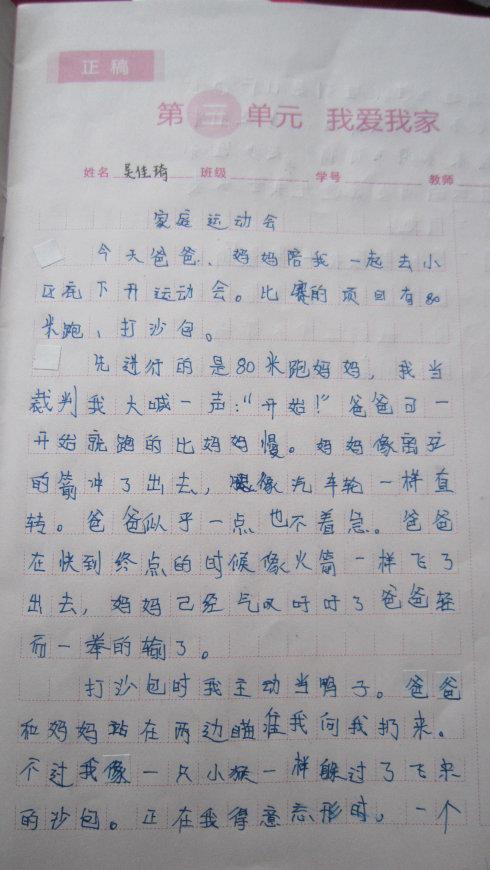 正稿
第三单元 我爱我家
姓名 吴佳琦 班级 学号 教师
家庭运动会
今天爸爸、妈妈陪我一起去小
区底下开运动会。比赛的项目有80
米跑、打沙包。
先进行的是80米跑妈妈，我当
裁判我大喊一声：“开始！”爸爸可一
开始就跑的比妈妈慢。妈妈像离弦
的箭冲了出去，像汽车轮一样直
转。爸爸似乎一点也不着急。爸爸
在快到终点的时候像火箭一样飞了
出去，妈妈已经气叹吁吁了爸爸轻
而一举的输了。
打沙包时我主动当鸭子。爸爸
和妈妈站在两边瞄准我向我扔来。
不过我像一只小猴一样躲过了飞来
的沙包。正在我得意忘形时。一个